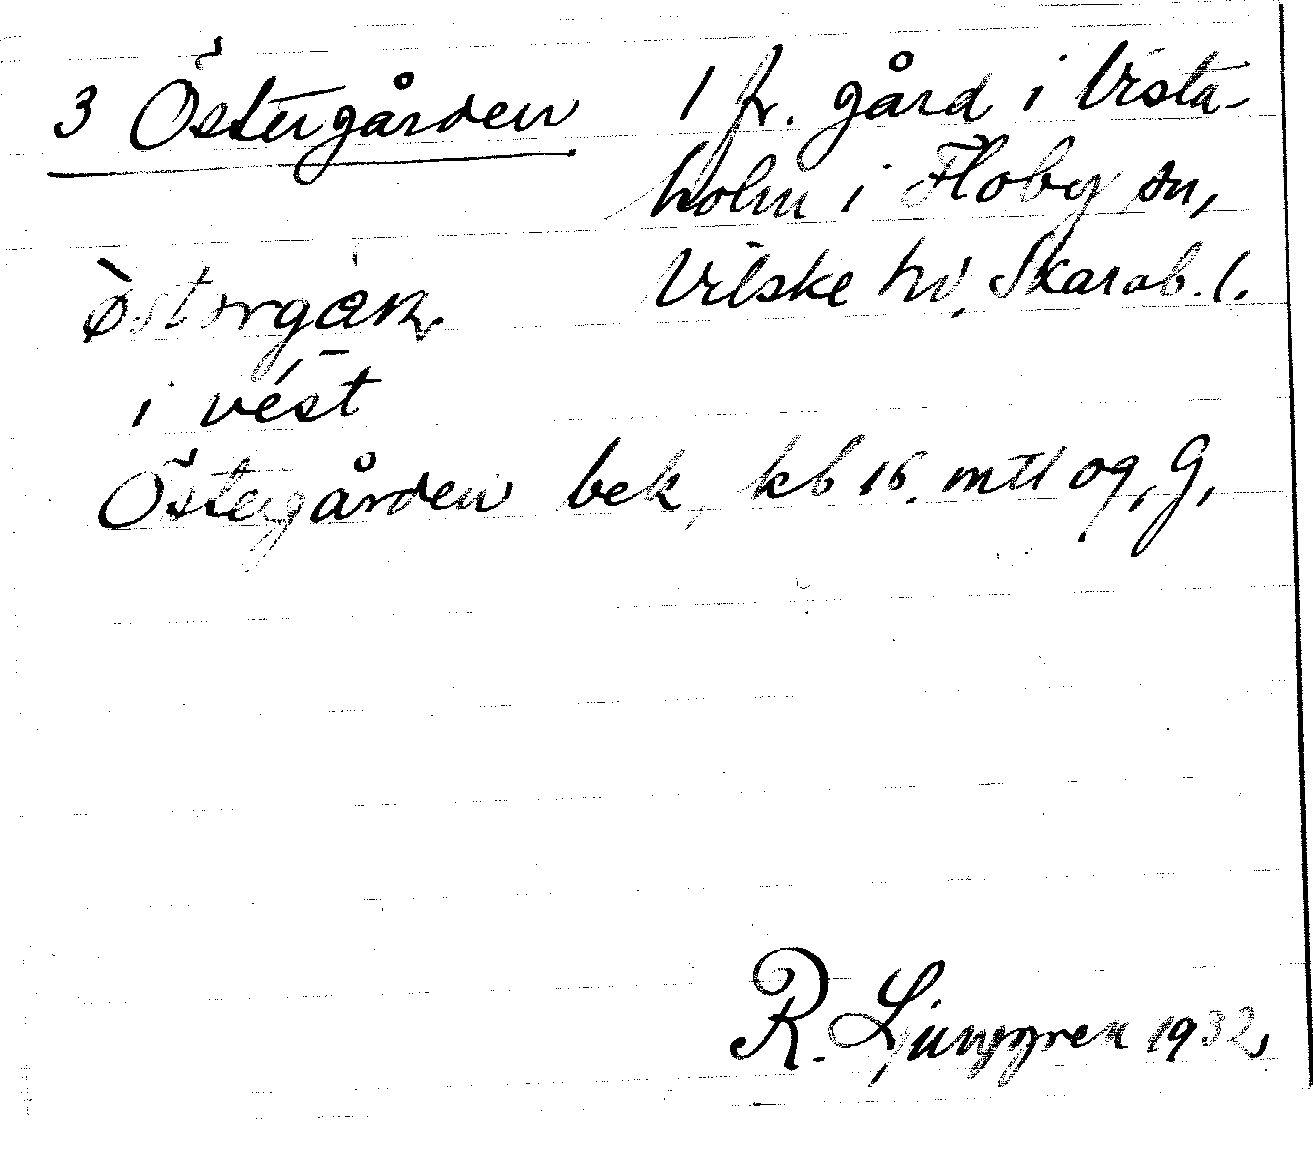 3 Östergården 1 fr. gård i Vista-
holm i Floby sn,
Vilske hd, Skarab. l.
i vést
Östergården bek, kb 16. mtl og, G,
R. Ljunggren 1932,